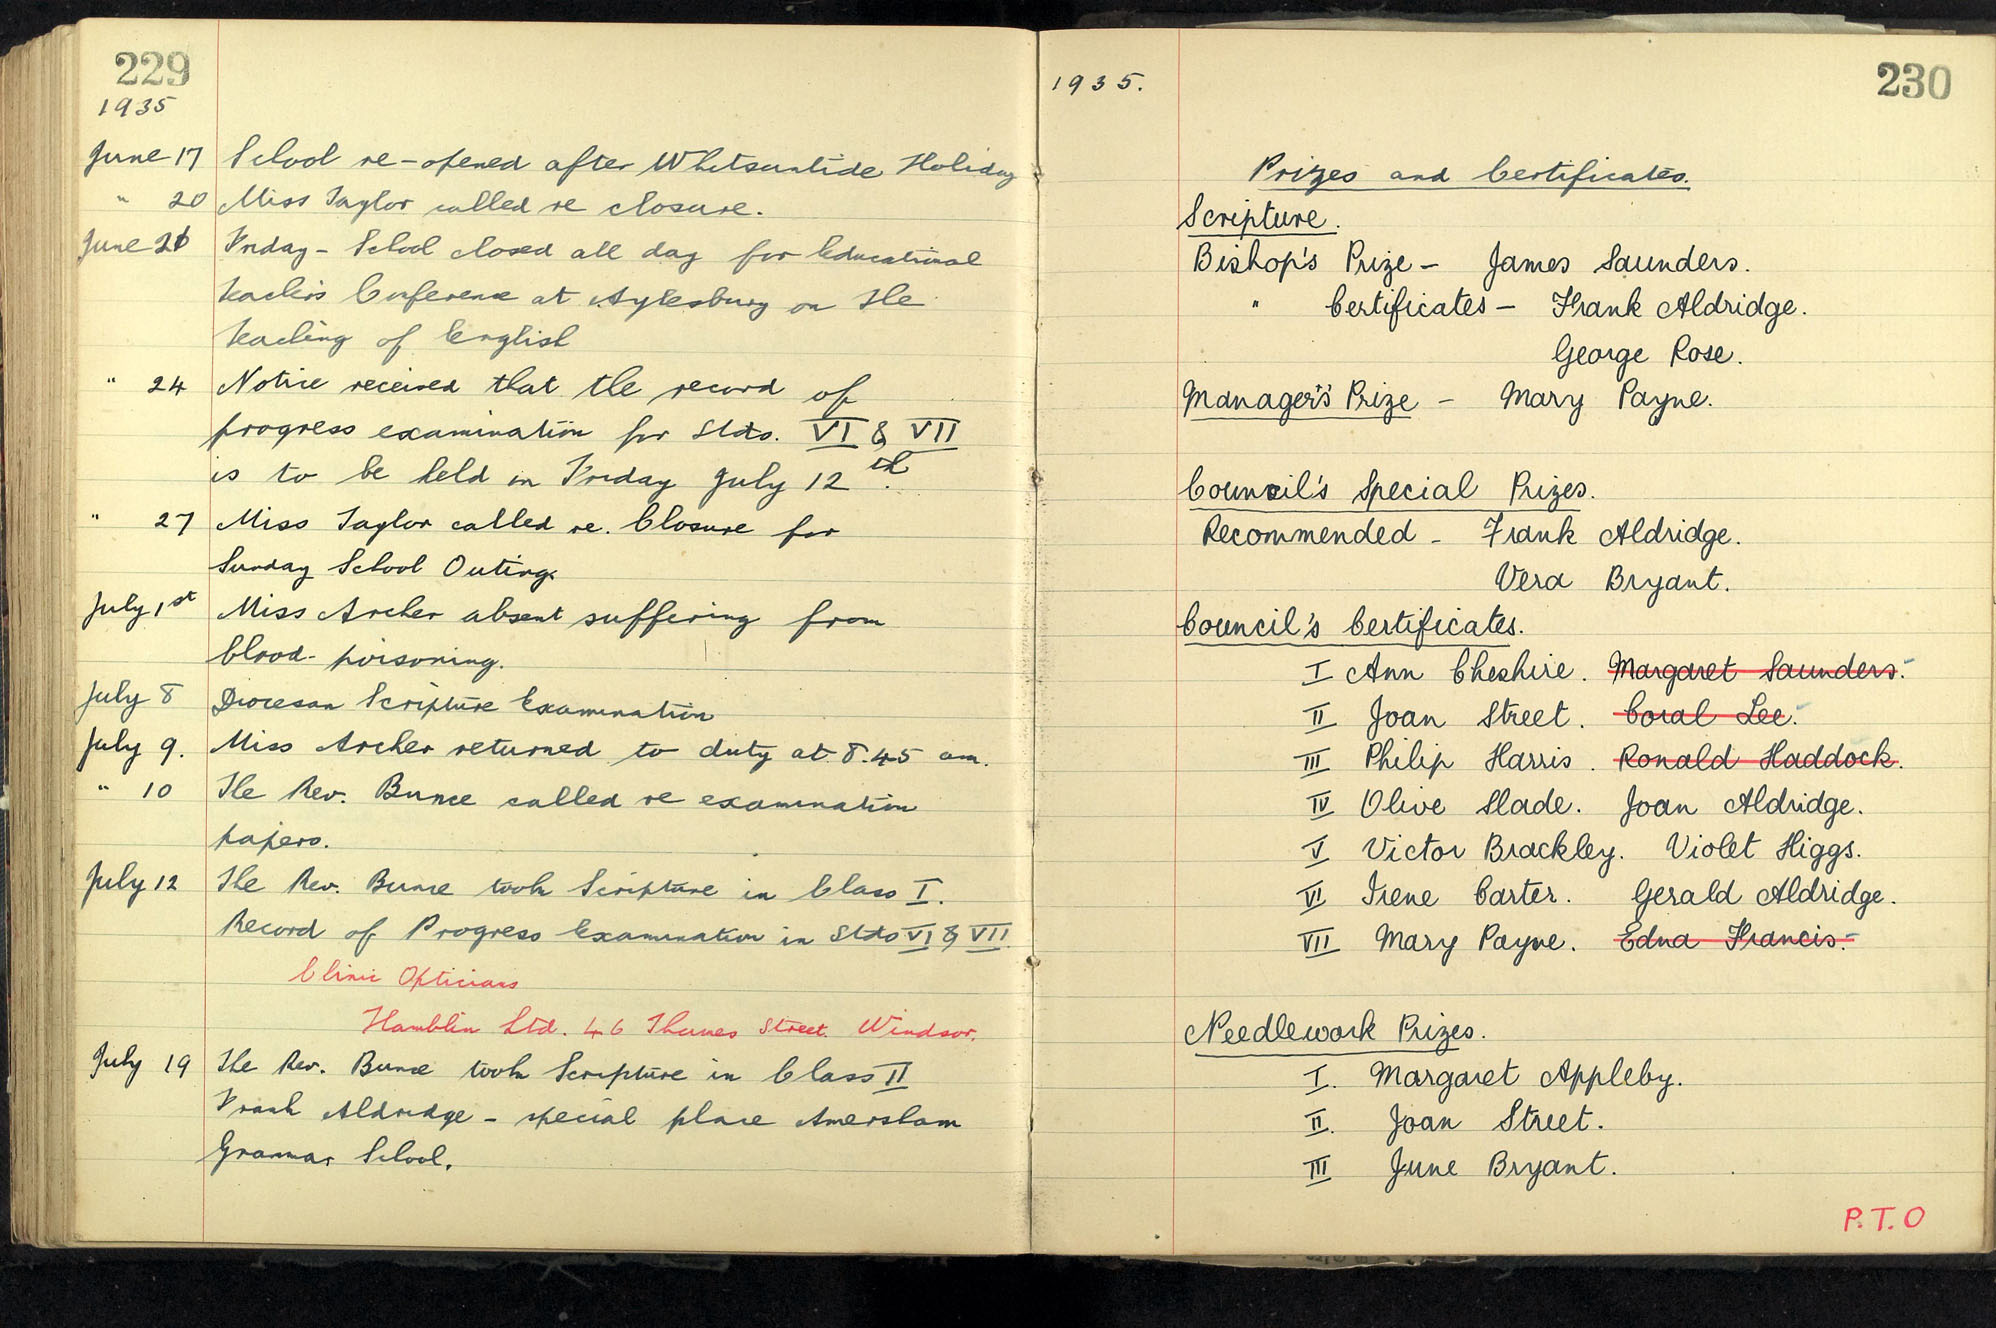 229
1935
June 17 School re-opened after Whitsuntide Holiday
" 20 Miss Taylor called re closure.
June 21 Friday - School closed all day for Educational
Teachers Conference at Aylesbury on the
teaching of English
" 24 Notice received that the record of
progress examination for Stds. VI & VII
is to be held on Friday July 12th.
" 27 Miss Taylor called re. Closure for
Sunday School Outing.
July 1st Miss Archer absent suffering from
blood-poisoning.
July 8 Diocesan Scripture Examination
July 9. Miss Archer returned to duty at 8.45 am.
" 10 The Rev. Bunce called re examination
papers.
July 12 The Rev. Bunce took Scripture in Class I.
Record of Progress Examination in Stds VI & VII
Clinic Opticians
Hamblin Ltd. 46 Thames Street. Windsor.
July 19 The Rev. Bunce took Scripture in Class II
Frank Aldridge - special place Amersham
Grammar School.
1935.
230
Prizes and Certificates.
Scripture.
Bishop's Prize - James Saunders.
" Certificates - Frank Aldridge.
George Rose.
Managers's Prize - Mary Payne.
Council's Special Prizes.
Recommended - Frank Aldridge.
Vera Bryant.
Council's Certificates.
I Ann Cheshire. Margaret Saunders.
II Joan Street. Coral Lee.
III Philip Harris. Ronald Haddock.
IV Olive Slade. Joan Aldridge.
V Victor Brackley. Violet Higgs.
VI Irene Carter. Gerald Aldridge.
VII Mary Payne. Edna Francis.
Needlework Prizes.
I. Margaret Appleby.
II. Joan Street.
III June Bryant.
P.T.O